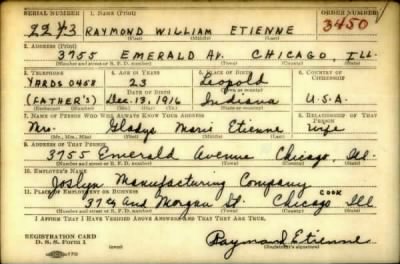 SERIAL NUMBER 1. NAME (Print) ORDER NUMBER
2243 RAYMOND WILLIAM ETIENNE 3450
(First) (Middle) (Last)
2. ADDRESS (Print)
3755 EMERALD AV. CHICAGO, ILL.
(Number and street or R. F. D. number) (Town) (County) (State)
3. TELEPHONE 4. AGE IN YEARS 5. PLACE OF BIRTH 6. COUNTRY OF CITIZENSHIP
YARDS 0458 23 Leopold
DATE OF BIRTH (Town or county)
(FATHER'S) Dec. 13, 1916 Indiana U.S.A.
(Exchange) (Number) (Mo.) (Day) (Yr.) (State or country)
7. NAME OF PERSON WHO WILL ALWAYS KNOW YOUR ADDRESS 8. RELATIONSHIP OF THAT PERSON
Mrs. Gladys Marie Etienne wife
(Mr., Mrs., Miss) (First) (Middle) (Last)
9. ADDRESS OF THAT PERSON
3755 Emerald Avenue Chicago, Ill.
(Number and street or R. F. D. number) (Town) (County) (State)
10. EMPLOYER'S NAME
Joslyn Manufacturing Company
11. PLACE OF EMPLOYMENT OR BUSINESS COOK
37th and Morgan St. Chicago Ill
(Number and street or R. F. D. number) (Town) (County) (State)
I AFFIRM THAT I HAVE VERIFIED ABOVE ANSWERS AND THAT THEY ARE TRUE.
REGISTRATION CARD
D. S. S. Form 1 (over) Raymond Etienne
(Registrant's signature)